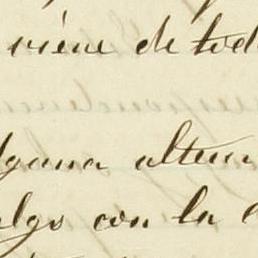 viene de tod
lguna altera
algo con la